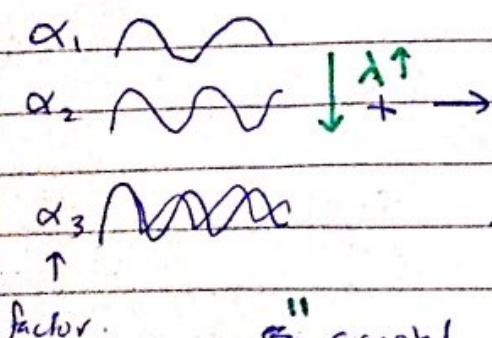 α₁ λ↑
α₂ + →
α₃
↑
factor.